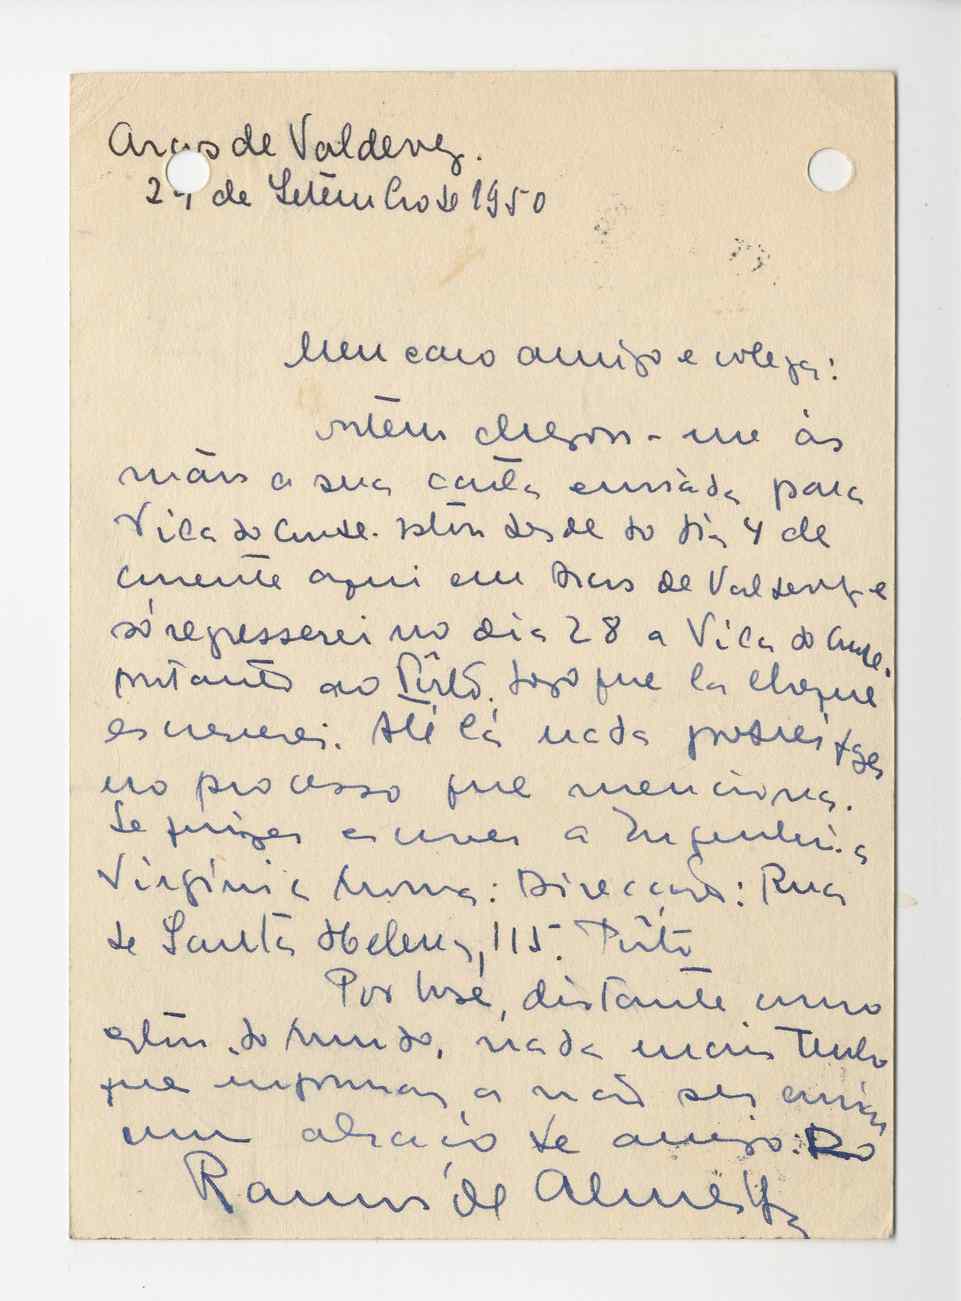 Arcos de Valdevez.
24 de Setembro de 1950
Meu caro amigo e colega:
ontem chegou-me às
mãos a sua carta enviada para
Vila do Conde. Estou desde do dia 4 de
corrente aqui em Arcos de Valdevez e
só regresserei no dia 28 a Vila do Conde.
portanto ao Pôrto. Logo que lá chegue
escreverei. Até lá nada poderei fazer
no processo que menciona.
Se quizer escrever a Engenheira
Virgínia Moura: Direcção: Rua
de Santa Helena, 115. Pôrto
Por hoje, distante como
estou do mundo, nada mais tenho
que informar a não ser enviar
um abraço de amigo: Do
Ramos de Almeida